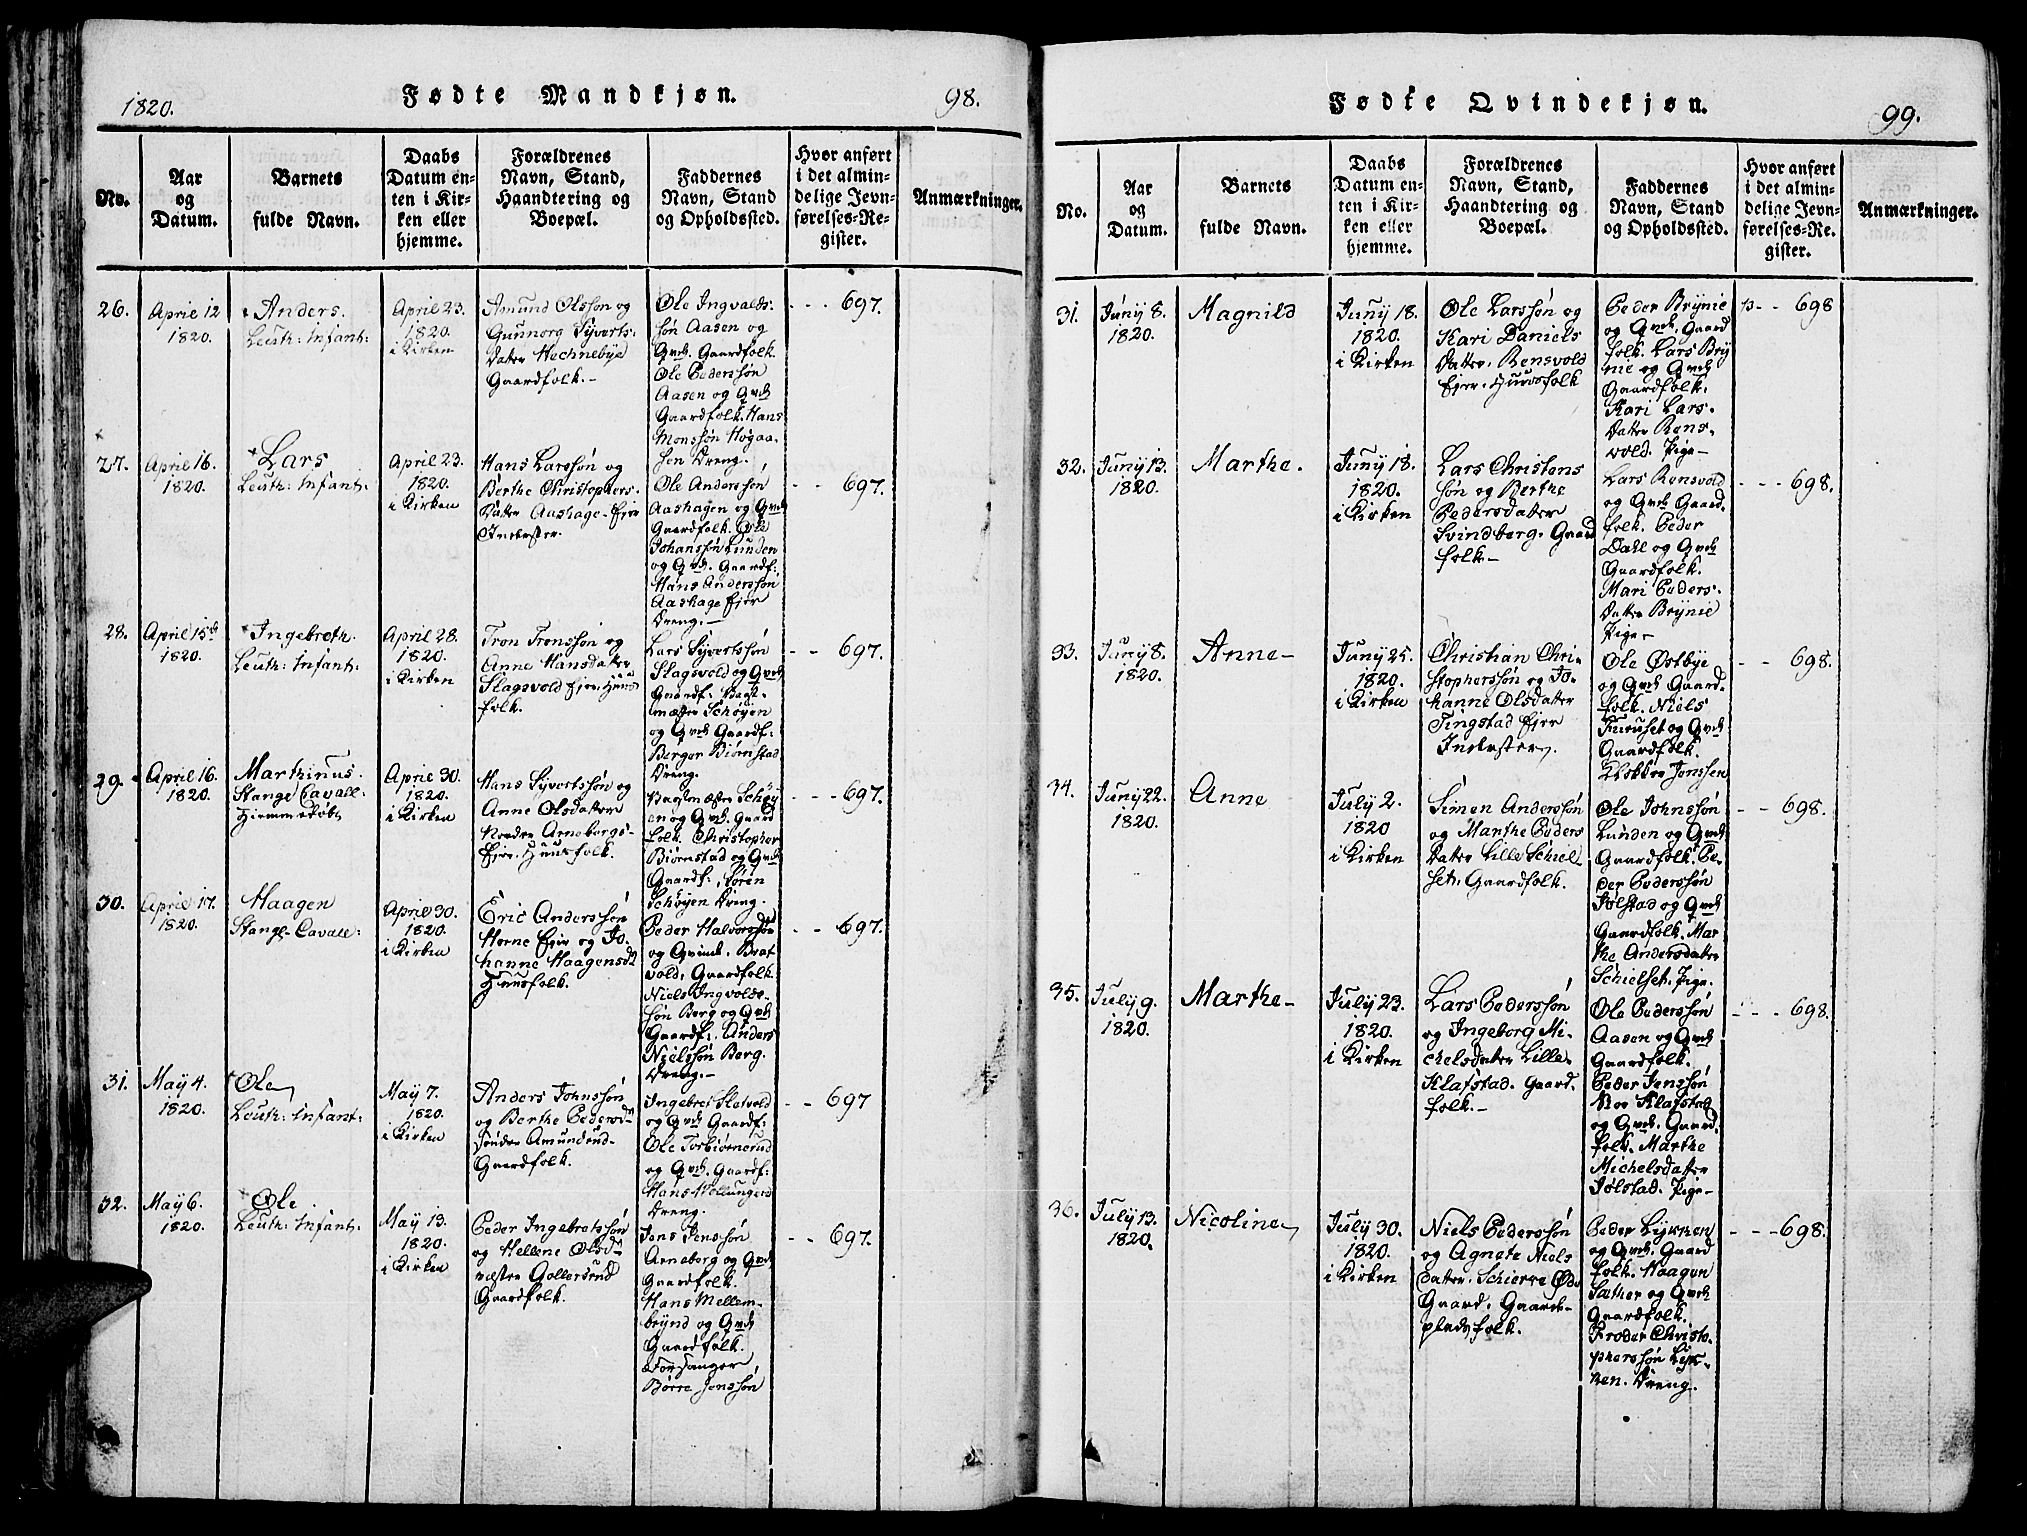 1820.
Fødte Mandkjøn.
98.
No.
Aar
og
Datum.
Barnets
fulde Navn.
Daabs
Datum en-
ten i Kir-
ken eller
hjemme.
Forældrenes
Navn, Stand,
Haandtering og
Boepæl.
Faddernes
Navn, Stand
og Opholdssted.
Hvor anført
i det almin-
delige Jevn-
førelses-Re-
gister.
Anmærkninger.
26.
Aprile 12
1820.
Anders.
Leuth: Infant:
April 23.
1820.
i Kirken
Amund Olssøn og
Gunnors Syverts:
Datter Hechnebye
Gaardfolk.-
Ole Ingvalds:
søn Aasen og
Qvd. Gaardfolk.
Ole Pederssøn
Aasen og Qvd
Gaardfolk. Hans
Monssøn Høgaa-
sen Dreng.
- - - 697.
27.
April 16.
1820.
Lars
Leuth: Infant:
April 23.
1820.
i Kirken
Hans Larssøn og
Berthe Christophers.
Datter Aashage-Eier
Inderster.
Ole Anderssøn
Aashagen og Qvd
Gaardfolk.
Johanssøn Lunden
og Qvd. Gaardf:
Hans Anderssøn
Aashage Eier
Dreng.-
- - 697.
28.
April 15de
1820.
Ingebreth.
Leuth: Infant:
April 28.
1820.
i Kirken
Tron Tronssøn og
Anne Hansdatter
Slagsvold Eier. Huus
folk.
Lars Syvertssøn
Slagsvold og Qvd
Gaardf: Bagt-
mæster Schøyen
og Qvd Gaardf:
Berger Biørnstad
Dreng.
- - 697.
29.
April 16.
1820.
Marthinus.
Stange Cavall:
Hiemmedøbt
April 30.
1820.
i Kirken
Hans Syvertssøn og
Anne Olsdatter
Nordre Arneborgs-
Eier. Huusfolk.
Vagtmæster Schøy
en og Qvd. Gaard
folk. Christopher
Biørnstad og Qvd
Gaardf:. Søren
Schøyen Dreng.
- - - 697.
30.
April 17.
1820.
Haagen
Stange Cavall:
April 30.
1820.
i Kirken
Eric Anderssøn
Horne Eier og Jo-
hanne Haagensd
Huusfolk.
Peder Halvorssøn
og Qvinde. Brat
vold, Gaardfolk.
Niels Ingvolds-
søn Berg og Qvd
Gaardf:. Anders
Nielssøn Berg.
Dreng.-
- - 697.
31.
May 4.
1820.
Ole
Leuth: Infant:
May 7.
1820.
i Kirken
Anders Johnssøn
og Berthe Pedersd
søndre Amundrud-
Gaardfolk.
Ingebret Slatvold
og Qvd Gaardf:
Ole Torbiørnsrud
og Qvd. Gaardf:
Hans
Dreng.
- - 697
32.
May 6.
1820.
Ole.
Leuth: Infant:
May 13.
1820.
i Kirken
Peder Ingebretssøn
og Hellene Olsd
væstre Gollersrud
Gaardfolk.
Jens Jenssøn
Arneborg og Qvd
Gaardfolk.
Hans Mellem-
brynd og Qvd
Gaardfolk.
Forsanger
Børre Jenssøn
- - 697.
Fødte Qvindekjøn.
99.
No.
Aar
og
Datum.
Barnets
fulde Navn.
Daabs
Datum en-
ten i Kir-
ken eller
hjemme.
Forældrenes
Navn, Stand,
Haandtering og
Boepæl.
Faddernes
Navn, Stand
og Opholdssted.
Hvor anført
i det almin-
delige Jevn-
førelses-Re-
gister.
Anmærkninger.
31.
Juny 8.
1820.
Magnild
Juny 18.
1820.
i Kirken
Ole Larssøn og
Kari Daniels
Datter. Rensvold
Eier. Huusfolk
Peder Brynie
og Qvd. Gaard
folk. Lars Bry
nie og Qvd
Gaardfolk.
Kari Lars-
Datter Rens-
vold. Pige-
- - 698
32.
Juny 13.
1820.
Marthe.
Juny 18.
1820.
i Kirken
Lars Christens
søn og Berthe
Pedersdatter
Svindberg. Gaard
folk-
Lars Rensvold
og Qvd Gaard-
folk. Peder
Dahl og Qvd
Gaardfolk.
Mari Peders-
Datter Brynie
Pige-
- - - 698.
33.
Juny 8.
1820.
Anne-
Juny 25.
1820.
i Kirken
Christian Chri-
stopherssøn og Jo-
hanne Olsdatter
Tingstad Eier
Inderster.
Ole Østbye
og Qvd Gaard-
folk. Niels
Furuset og Qvd
Gaardfolk.
Klokker Jenssen
- - 698.
34.
Juny 22.
1820.
Anne
July 2.
1820
i Kirken
Simen Anderssøn
og Marthe Peders
Datter Lille Schiel-
set. Gaardfolk.
Ole Johnssøn
Lunden og Qvd
Gaardfolk. Pe-
der Pederssøn
Jølstad og Qvd
Gaardfolk. Mar
the Andersdatter
Schielset. Pige.
- - 698.
35.
July 9.
1820.
Marthe-
July 23.
1820.
i Kirken
Lars Pederssøn
og Ingeborg Mi-
chelsdatter Lille-
Klafstad. Gaard-
folk.-
Ole Pederssøn
Aasen og Qvd
Gaardfolk.
Peder Jenssøn
Nor Klafstad
og Qvd. Gaard-
folk. Marthe
Michelsdatter
Jølstad. Pige-
- - - 698.
36.
July 13.
1820.
Nicoline
July 30.
1820.
i Kirken
Niels Pederssøn
og Agnete Niels
datter. Schierre Øde
Gaard. Gaard-
pladsfolk.
Peder Lykken
og Qvd. Gaard
folk. Haagen
Sæther og Qvd
Gaardfolk.
Proder Christo-
pherssøn Lyk-
ken. Dreng.
- - - 698.